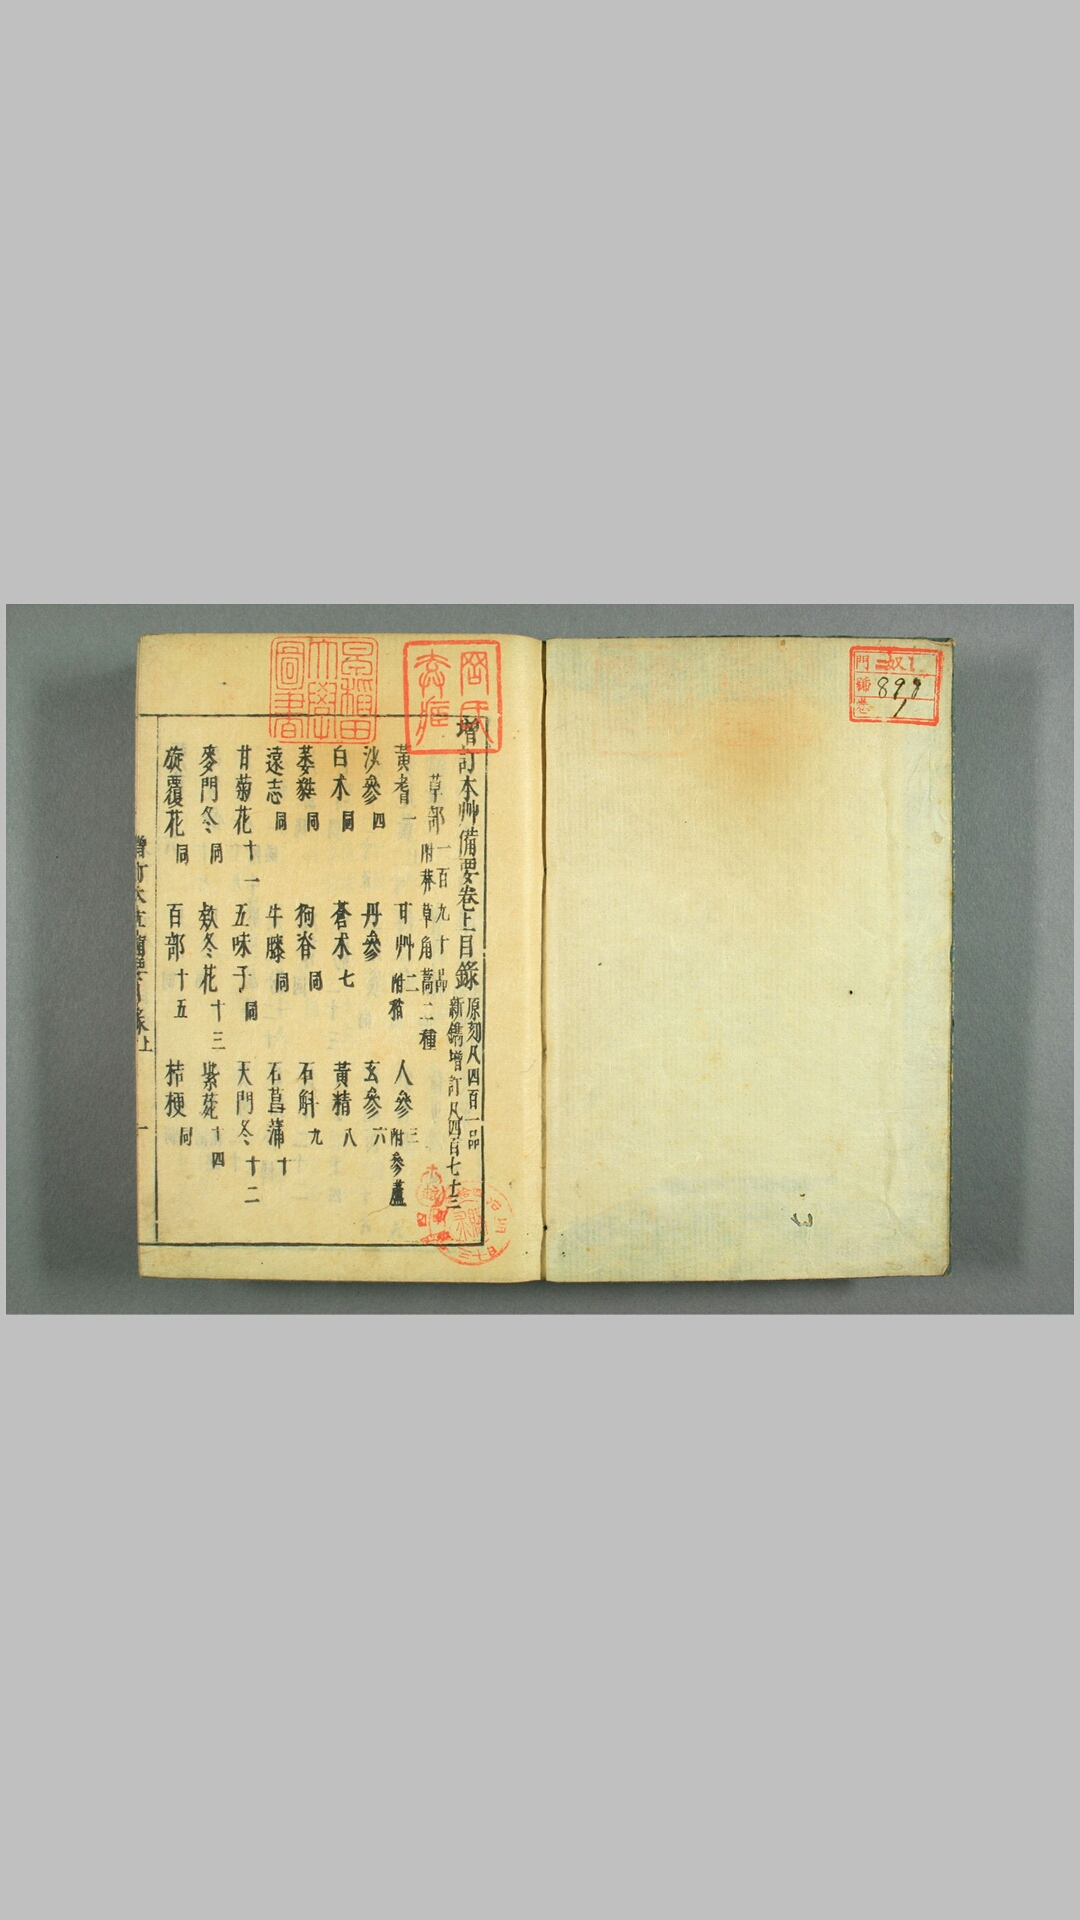 増訂本艸備要卷上目錄 原刻凡四百一品 新鐫增訂凡四百七十三
草部 一百九十品 附莽草角蒿二種
黃耆一 甘艸二 附稍 人參三 附參蘆
沙參四 丹參 玄參六
白朮同 蒼朮七 黃精八
萎蕤同 狗脊同 石斛九
遠志同 牛膝同 石菖蒲十
甘菊花十一 五味子同 天門冬十二
麥門冬同 欵冬花十三 紫菀十四
旋覆花同 百部十五 桔梗同
早稲田大學圖書
門 號 卷
899
1